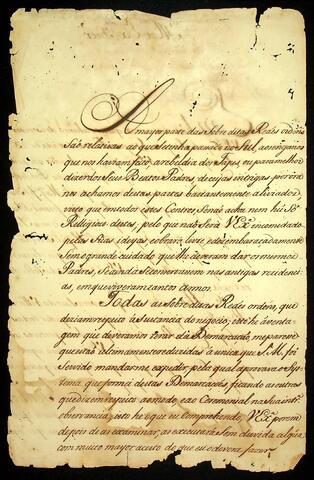 A mayor parte das Sobreditas Reaes ordens
Saõ relativas ao que se tenha passado no Sul, aos enganos
que nos haviam feito, a rebeldia dos Tapes, ou para melhor
dizer dos Seus Beatos Padres, de cujas intrigas por ora
nos achamos destas partes bastantemente aliviados,
visto que em todos estes Contros, Senaõ acha nem hũ Só
Religioso destes, pelo que naõ Será V. Ex.ª incomodado
pelas Suas ideyas, e obrará livre, e desembaraçadamente
Sem o grande cuidado que lhe deveram dar os mesmos
Padres, Se ainda Se conservassem nas antigas residencias,
em que viveram tantos annos.
Todas as Sobreditas Reaes ordens, que
diziam respeito á Sustancia do negocio, isto he á ventagem
que deveramos tirar da Demarcaçaõ, me parece
que estaõ ultimamente reduzidas á unica que S. M. foi
Servido mandarme expedir, pela qual aprovava o Systema
que forma destas Demarcações, ficando as outras
que dizem respeito ao modo, e ao Ceremonial na Sua inteira
observancia; isto he o que eu Comprehendo, V. Ex.ª porem
depois de as examinar, as executará Sem duvida alguma
com muito mayor acerto do que eu o devera fazer.